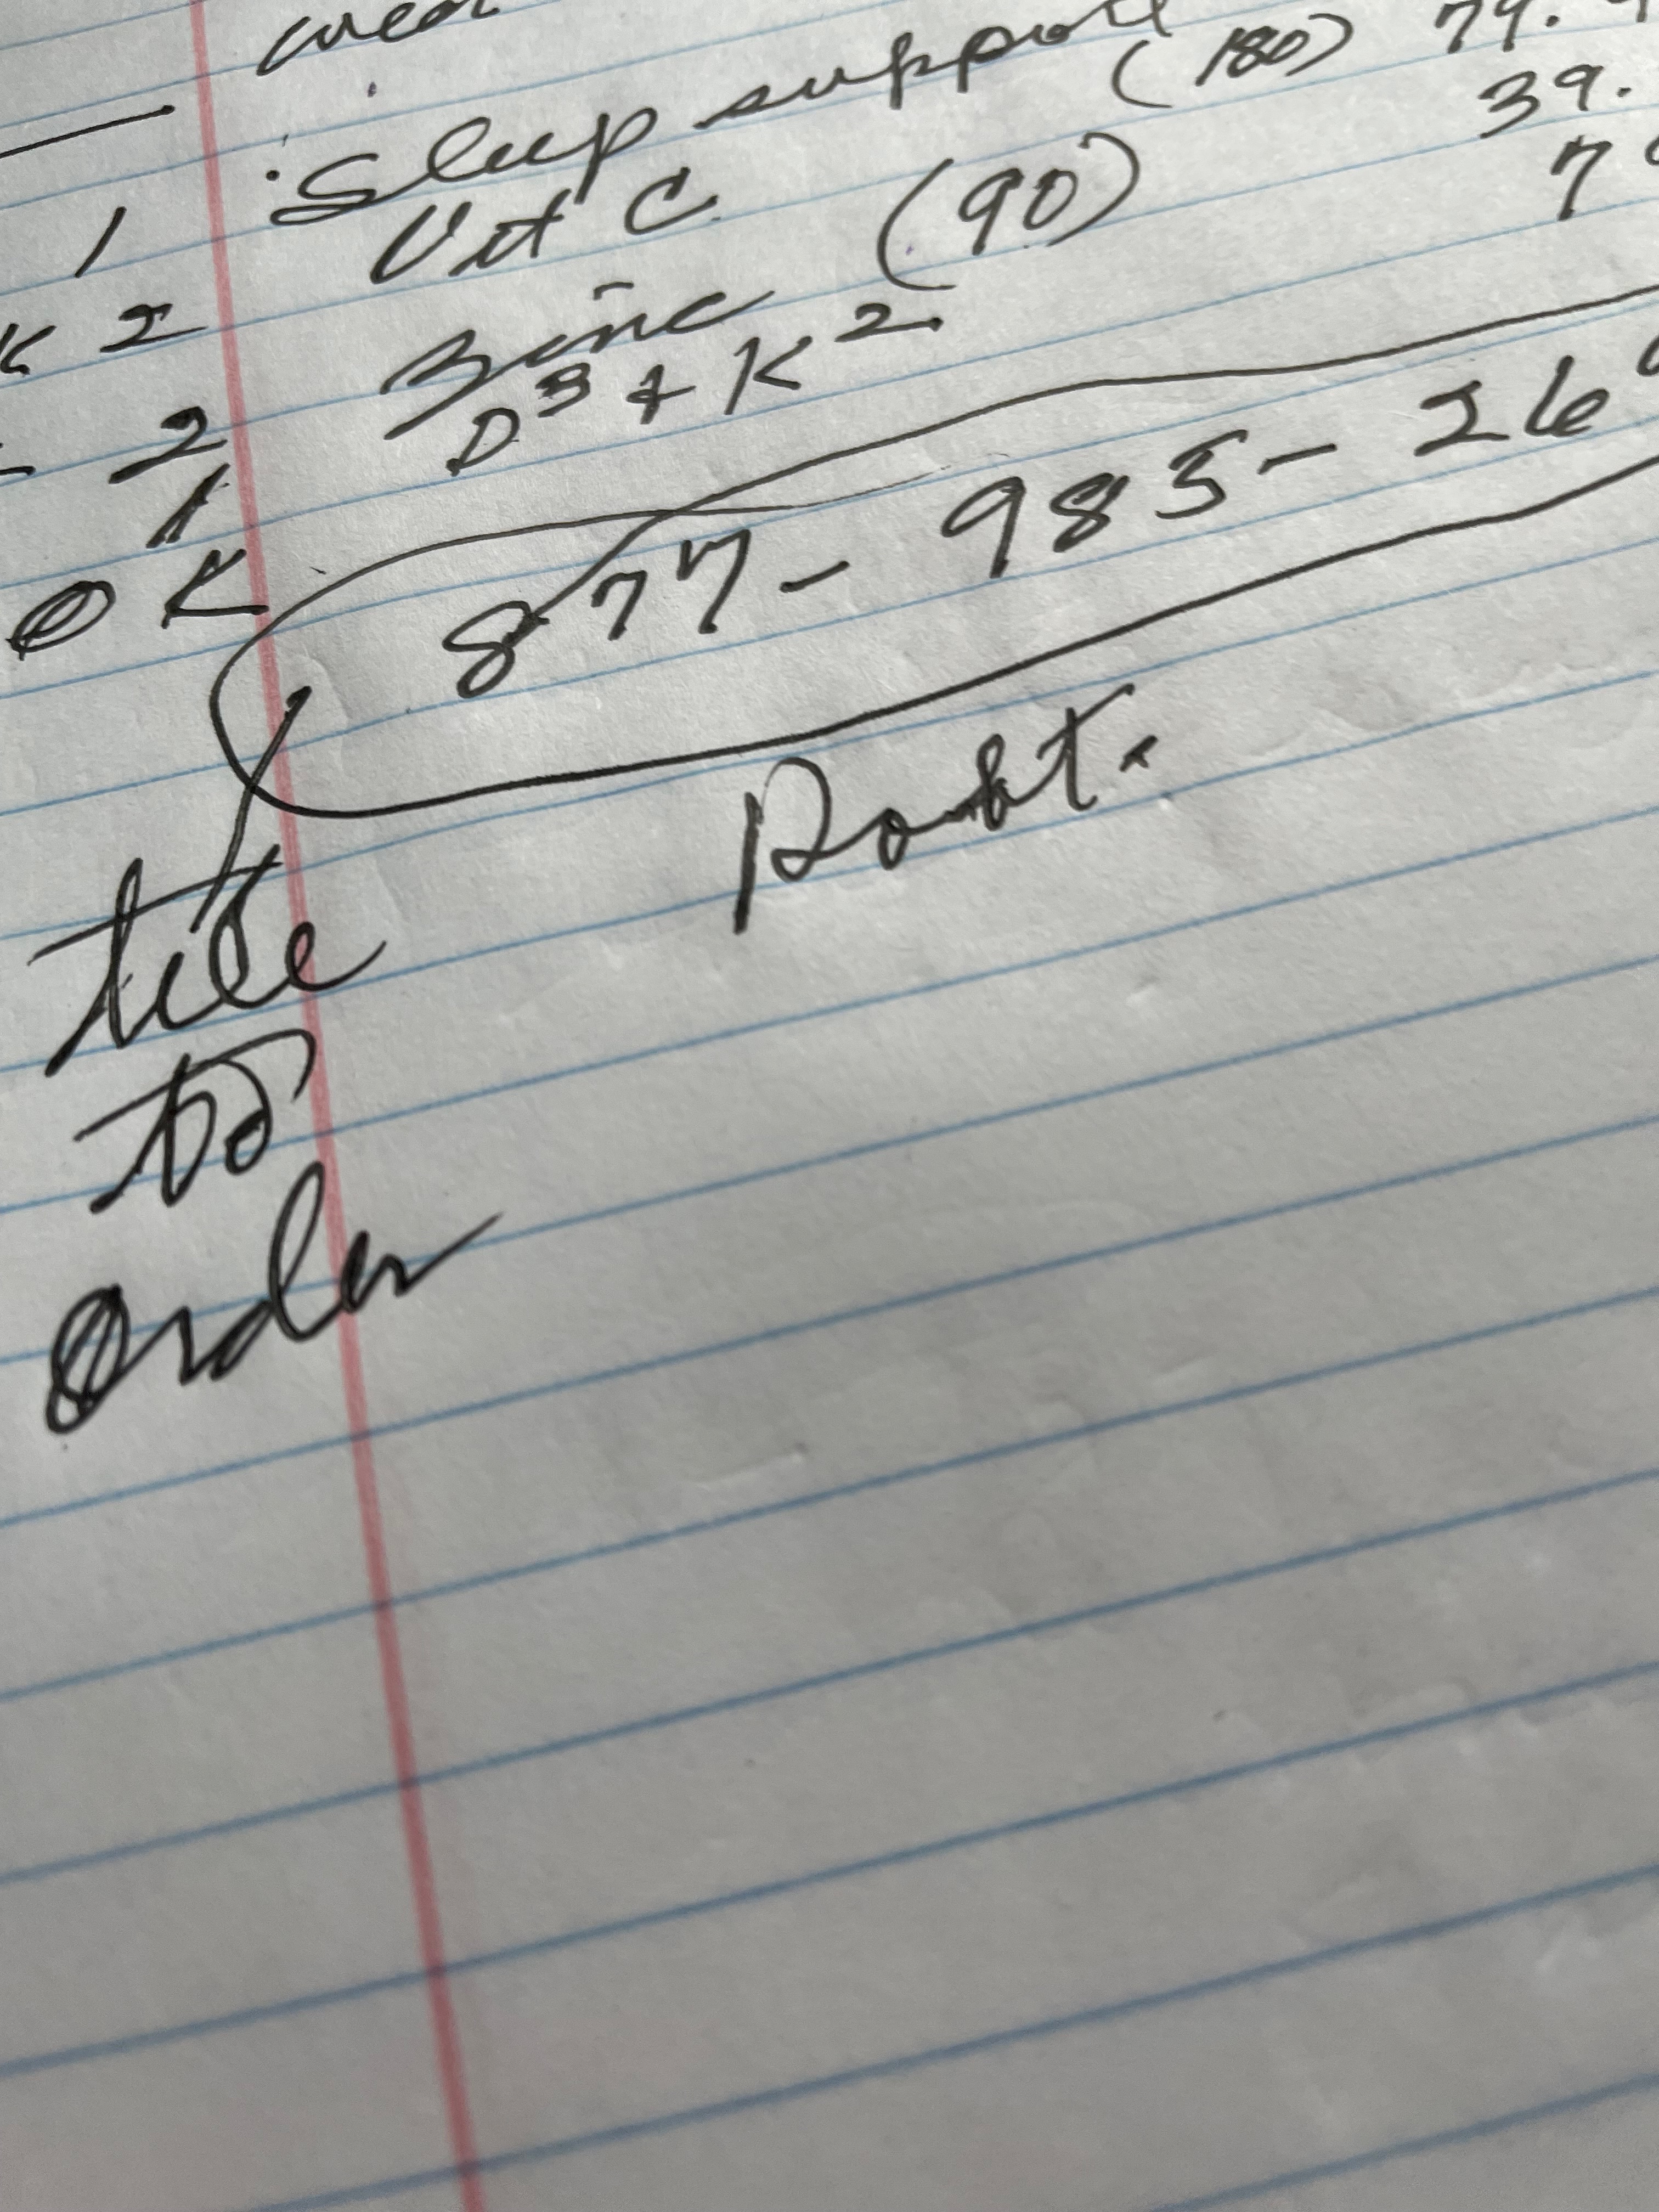 Sleep support (180) 79.
1 Vit C (90) 39.
K 2 Zinc 7
2 D3 + K2
1
OK
877-983-26
Robt.
tele
to
order